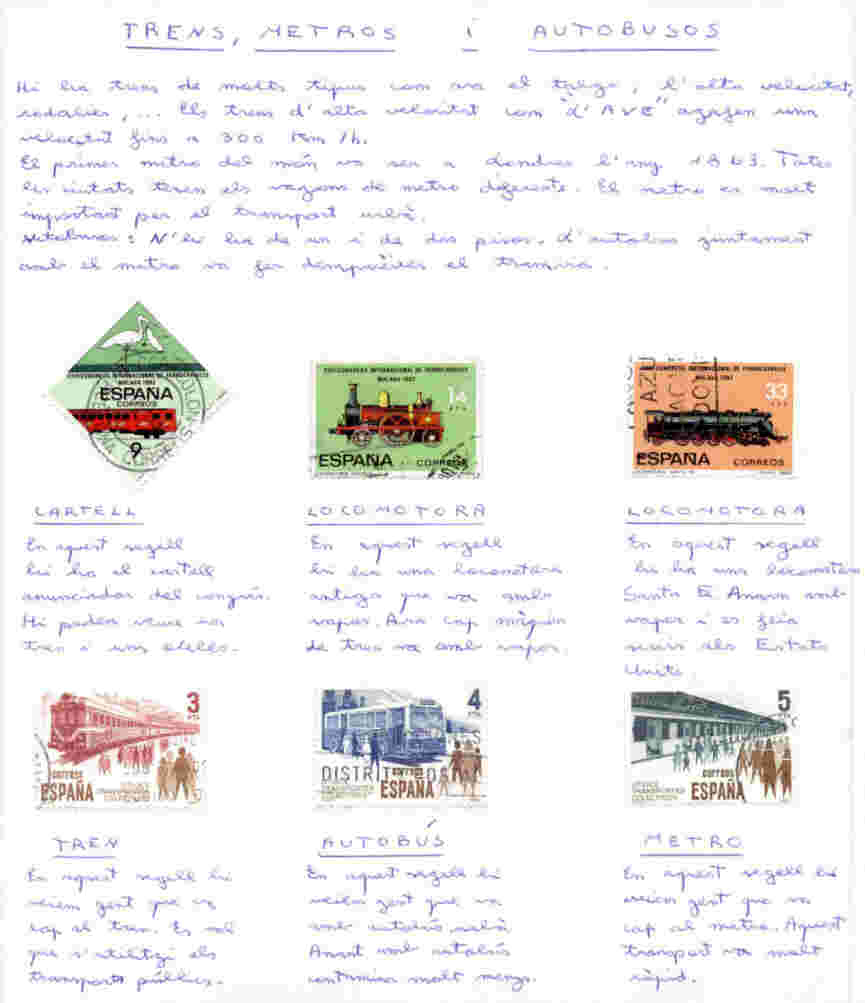 TRENS, METROS i AUTOBUSOS
Hi ha trens de molts tipus com ara el talgo, l'alta velocitat,
rodalies, ... Els trens d'alta velocitat com "L'AVE" agafen una
velocitat fins a 300 Km/h.
El primer metro del món va ser a Londres l'any 1863. Totes
les ciutats tenen els vagons de metro diferents. El metro es molt
important per el transport urbà.
Autobusos: N'hi ha de un i de dos pisos. L'autobus juntament
amb el metro va fer desaparèixer el tramvia.
XXIII CONGRESO INTERNACIONAL DE FERROCARRILES
MALAGA 1982
ESPAÑA
CORREOS
9
XXIII CONGRESO INTERNACIONAL DE FERROCARRILES
MALAGA 1982
14
PTA
ESPAÑA CORREOS
XXIII CONGRESO INTERNACIONAL DE FERROCARRILES
MALAGA 1982
33
PTA
ESPAÑA CORREOS
CARTELL
En aquest segell
hi ha el cartell
anunciador del congrés.
Hi podem veure un
tren i uns ocells.
LOCOMOTORA
En aquest segell
hi ha una locomotora
antiga que va amb
vapor. Ara cap màquina
de tren va amb vapor.
LOCOMOTORA
En aquest segell
hi ha una locomotora
Santa Fe. Anava amb
vapor i es feia
servir als Estats
Units.
3
PTA
CORREOS
ESPAÑA
UTILICE
TRANSPORTES
COLECTIVOS
4
PTA
DISTRITO
CORREOS
ESPAÑA
UTILICE
TRANSPORTES
COLECTIVOS
5
PTA
CORREOS
ESPAÑA
UTILICE
TRANSPORTES
COLECTIVOS
TREN
En aquest segell hi
veiem gent que va
cap al tren. Es
que s'utilitzi els
transports públics.
AUTOBÚS
En aquest segell hi
veiem gent que va
amb autobús urbà
Anant amb autobús
contamina molt menys.
METRO
En aquest segell hi
veiem gent que va
cap al metro. Aquest
transport va molt
ràpid.